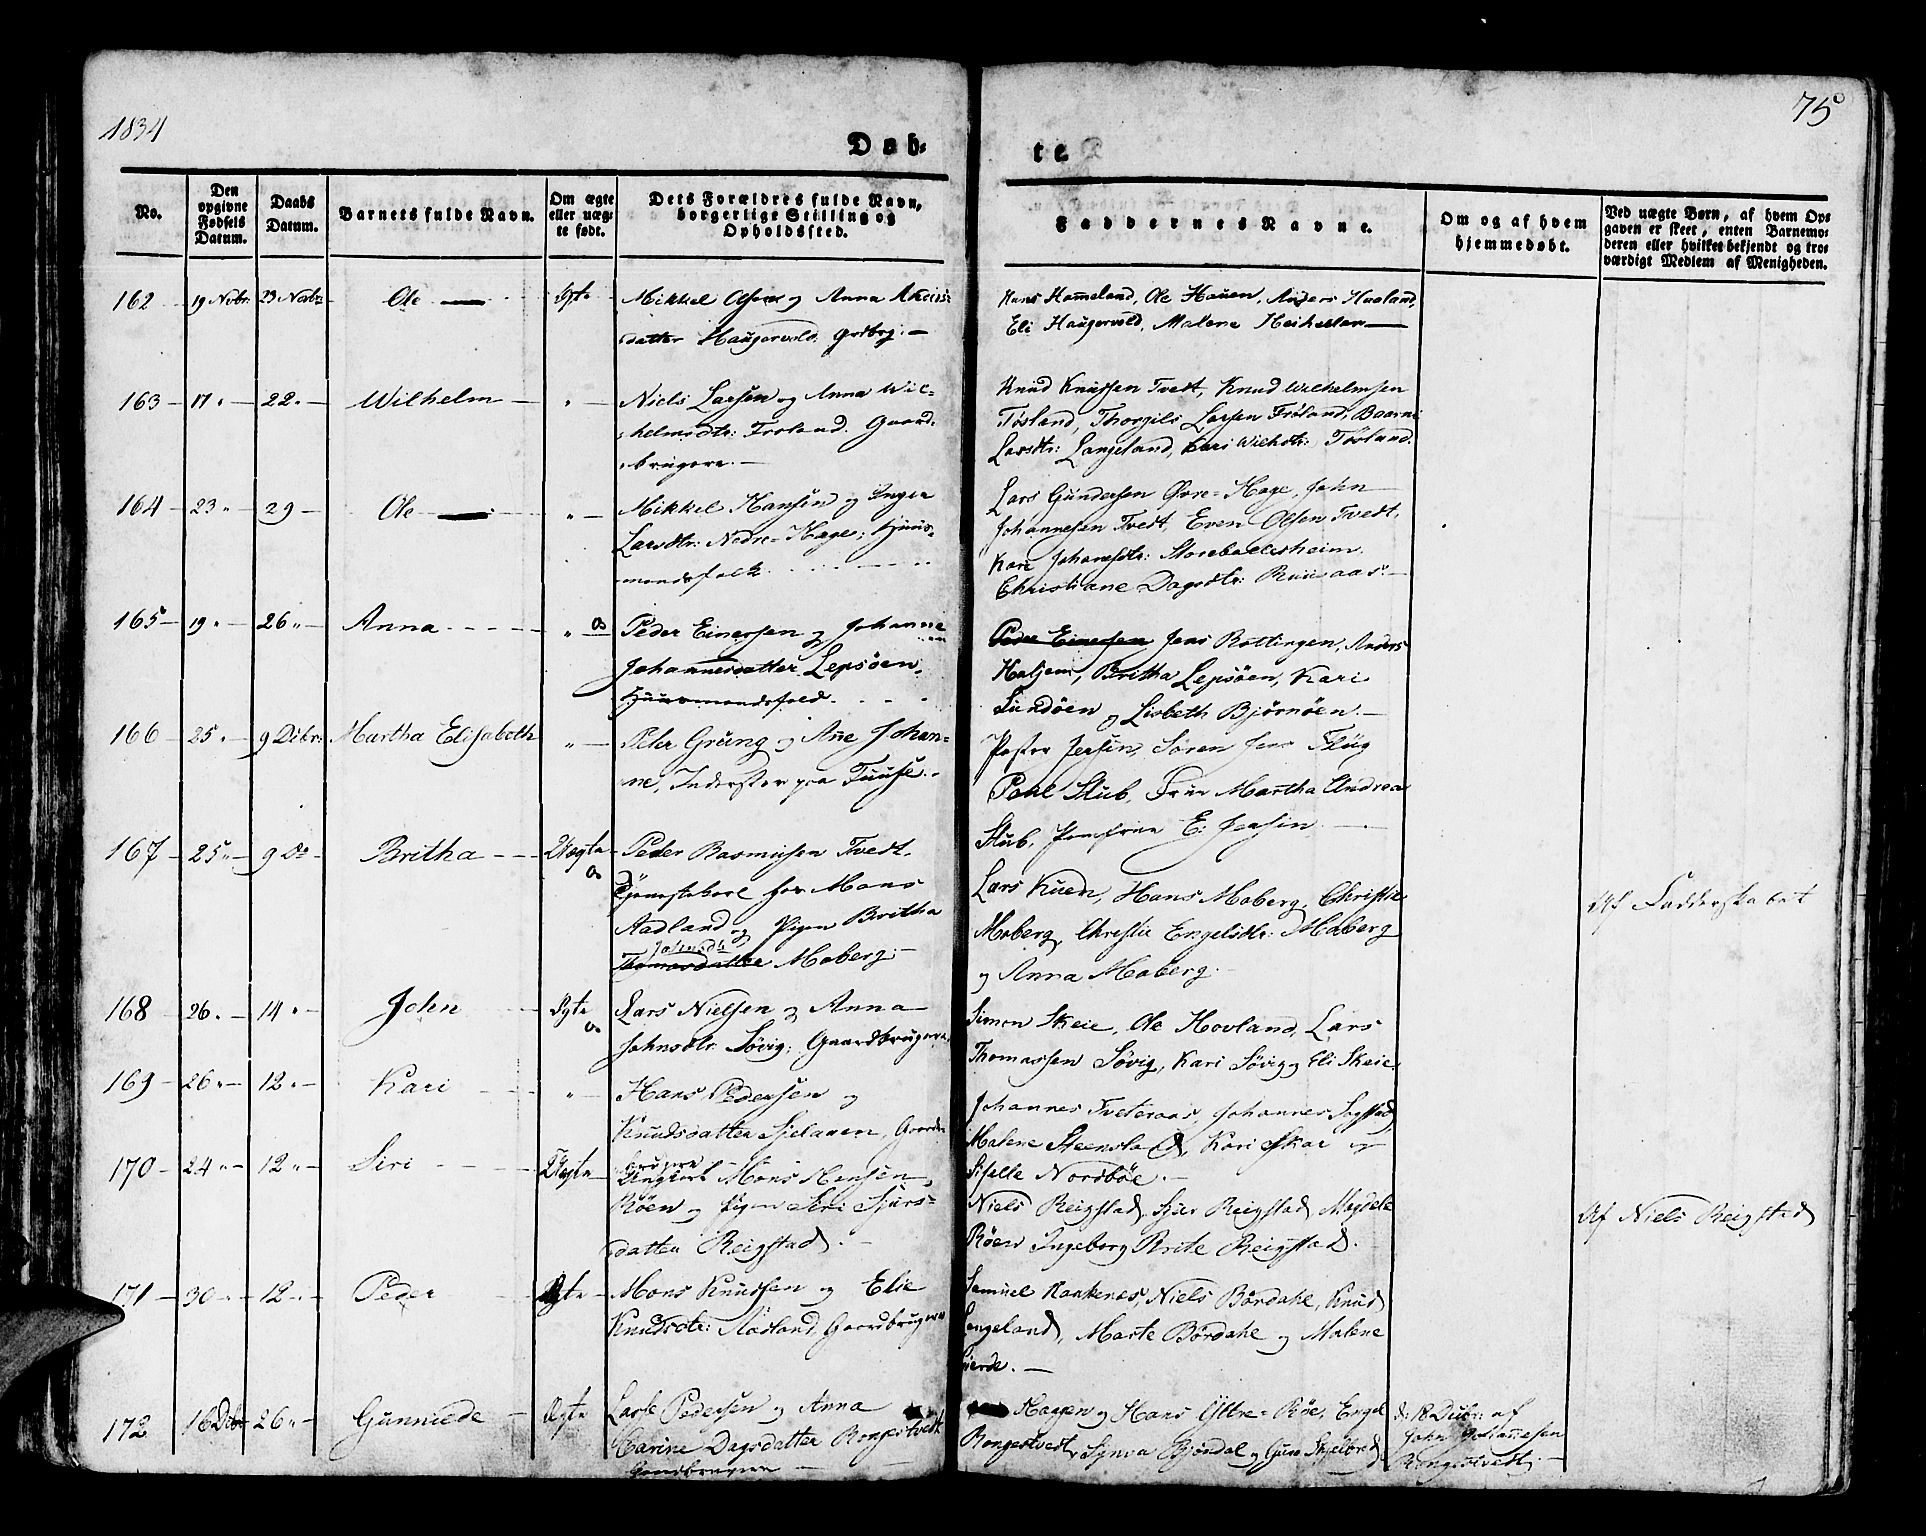 1834
75
Døb-
te
No.
Den opgivne Fødsels Datum.
Daabs Datum.
Barnets fulde Navn.
Om ægte eller uægte født.
Dets Forældres fulde Navn, borgerlige Stilling og Opholdssted.
Faddernes Navne.
Om og af hvem hjemmedøbt.
Ved uægte Børn, af hvem Opgaven er skeet, enten Barnemoderen eller hvilket bekjendt og troværdigt Medlem af Menigheden.
162 19 Novbr: 23 Novbr Ole Ægte Mikkel Olsen og Anna
datter Haugervold
Hans Hammeland, Ole Hauen, Anders Haaland,
Eli Haugervold, Malene
163 17 " 22 " Wilhelm " Niels Larsen og Anna Wil-
helmsdtr: Frøland. Gaard-
brugere.
Knud Knudsen Tvedt, Knud Wilhelmsen
Tøsland, Thorgils Larsen Frøland,
Larsdtr: Langeland, Kari Wilhdtr: Tøsland.
164 23 " 29 Ole " Mikkel Hansen og Inger
Larsdtr: Nedre-Hage, Huus-
mandsfolk
Lars Gundersen Øvre-Hage, John
Johannesen Tvedt, Even Olsen Tvedt,
Kari Johansdtr:
Christiane Dagsdtr:
165 19 " 26 " Anna " Peder Einersen og Johanne
Johannesdatter Lepsøen,
Huusmandsfolk.
Peder Einersen Jens Rottingen, Anders
Haljem, Britha Lepsøen, Kari
Sundøen og Lisbeth Bjørnøen.
166 25 " 9 Debr: Martha Elisabeth " Peter Grung og Ane Johan-
ne, Inderster paa Fuuse.
Pastor Jersin, Søren Jens Flug
Pohl Stub, Frue Martha Andrea
Stub, Jomfrue E. Jersin
167 25 " 9 Do Britha Uægte Peder Rasmusen Tvedt,
Tjenestekarl for Mons
Aadland og Pigen Britha
Johnsdtr
Thomasdatter Moberg.
Lars Kuen, Hans Moberg, Christie
Moberg, Christie Engelsdtr: Moberg
og Anna Moberg.
Af Fadderskabet
168 26 " 14 " John Ægte Lars Nielsen og Anna
Johnsdtr Søvig, Gaardbrugere
Simon Skeie, Ole Hovland, Lars
Thomassen Søvig, Kari Søvig og Eli Skeie.
169 26 " 12 " Kari " Hans Pedersen og
Knudsdatter Gaard-
brugere
Johannes Tveteraas, Johannes Søgstad,
Malene Steensland, Kari Skar og
Sifelle Nordbøe.
170 24 " 12 " Siri Uægte Ungkarl Mons Monsen
Røen og Pigen Siri Sjurs-
datter Reigstad.
Niels Reigstad, Sjur Reigstad, Magdele
Røen Ingeborg Brite Reigstad.
Af Niels Reigstad
171 30 " 12 " Peder Ægte Mons Knudsen og Elie
Knudsdtr: Aadland, Gaardbrugere
Samuel Haukenes, Niels Børdahl, Knud
Langeland, Marte Børdahl og Malene
172 16 Debr 26 " Gunnilde Ægte Lasse Pedersen og Anna
Carine Dagsdatter Rongestvedt
Gaardbrugere
Haggen og Hans Yttre-Røe, Engel
Rongestvedt, Synva Bjørdal og Guro
d: 18 Debr: af
John Johannesen
Rongestvedt.